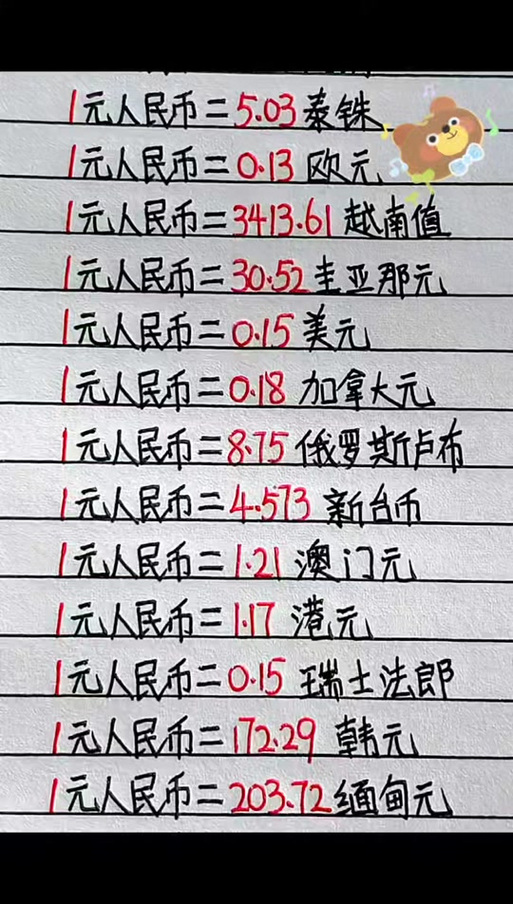 1元人民币=5.03泰铢
1元人民币=0.13欧元
1元人民币=3413.61越南值
1元人民币=30.52圭亚那元
1元人民币=0.15美元
1元人民币=0.18加拿大元
1元人民币=8.75俄罗斯卢布
1元人民币=4.573新台币
1元人民币=1.21澳门元
1元人民币=1.17港元
1元人民币=0.15瑞士法郎
1元人民币=172.29韩元
1元人民币=203.72缅甸元